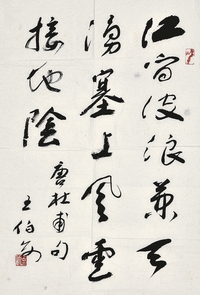 江间波浪兼天
涌塞上风云
接地陰
唐杜甫句
王伯敏